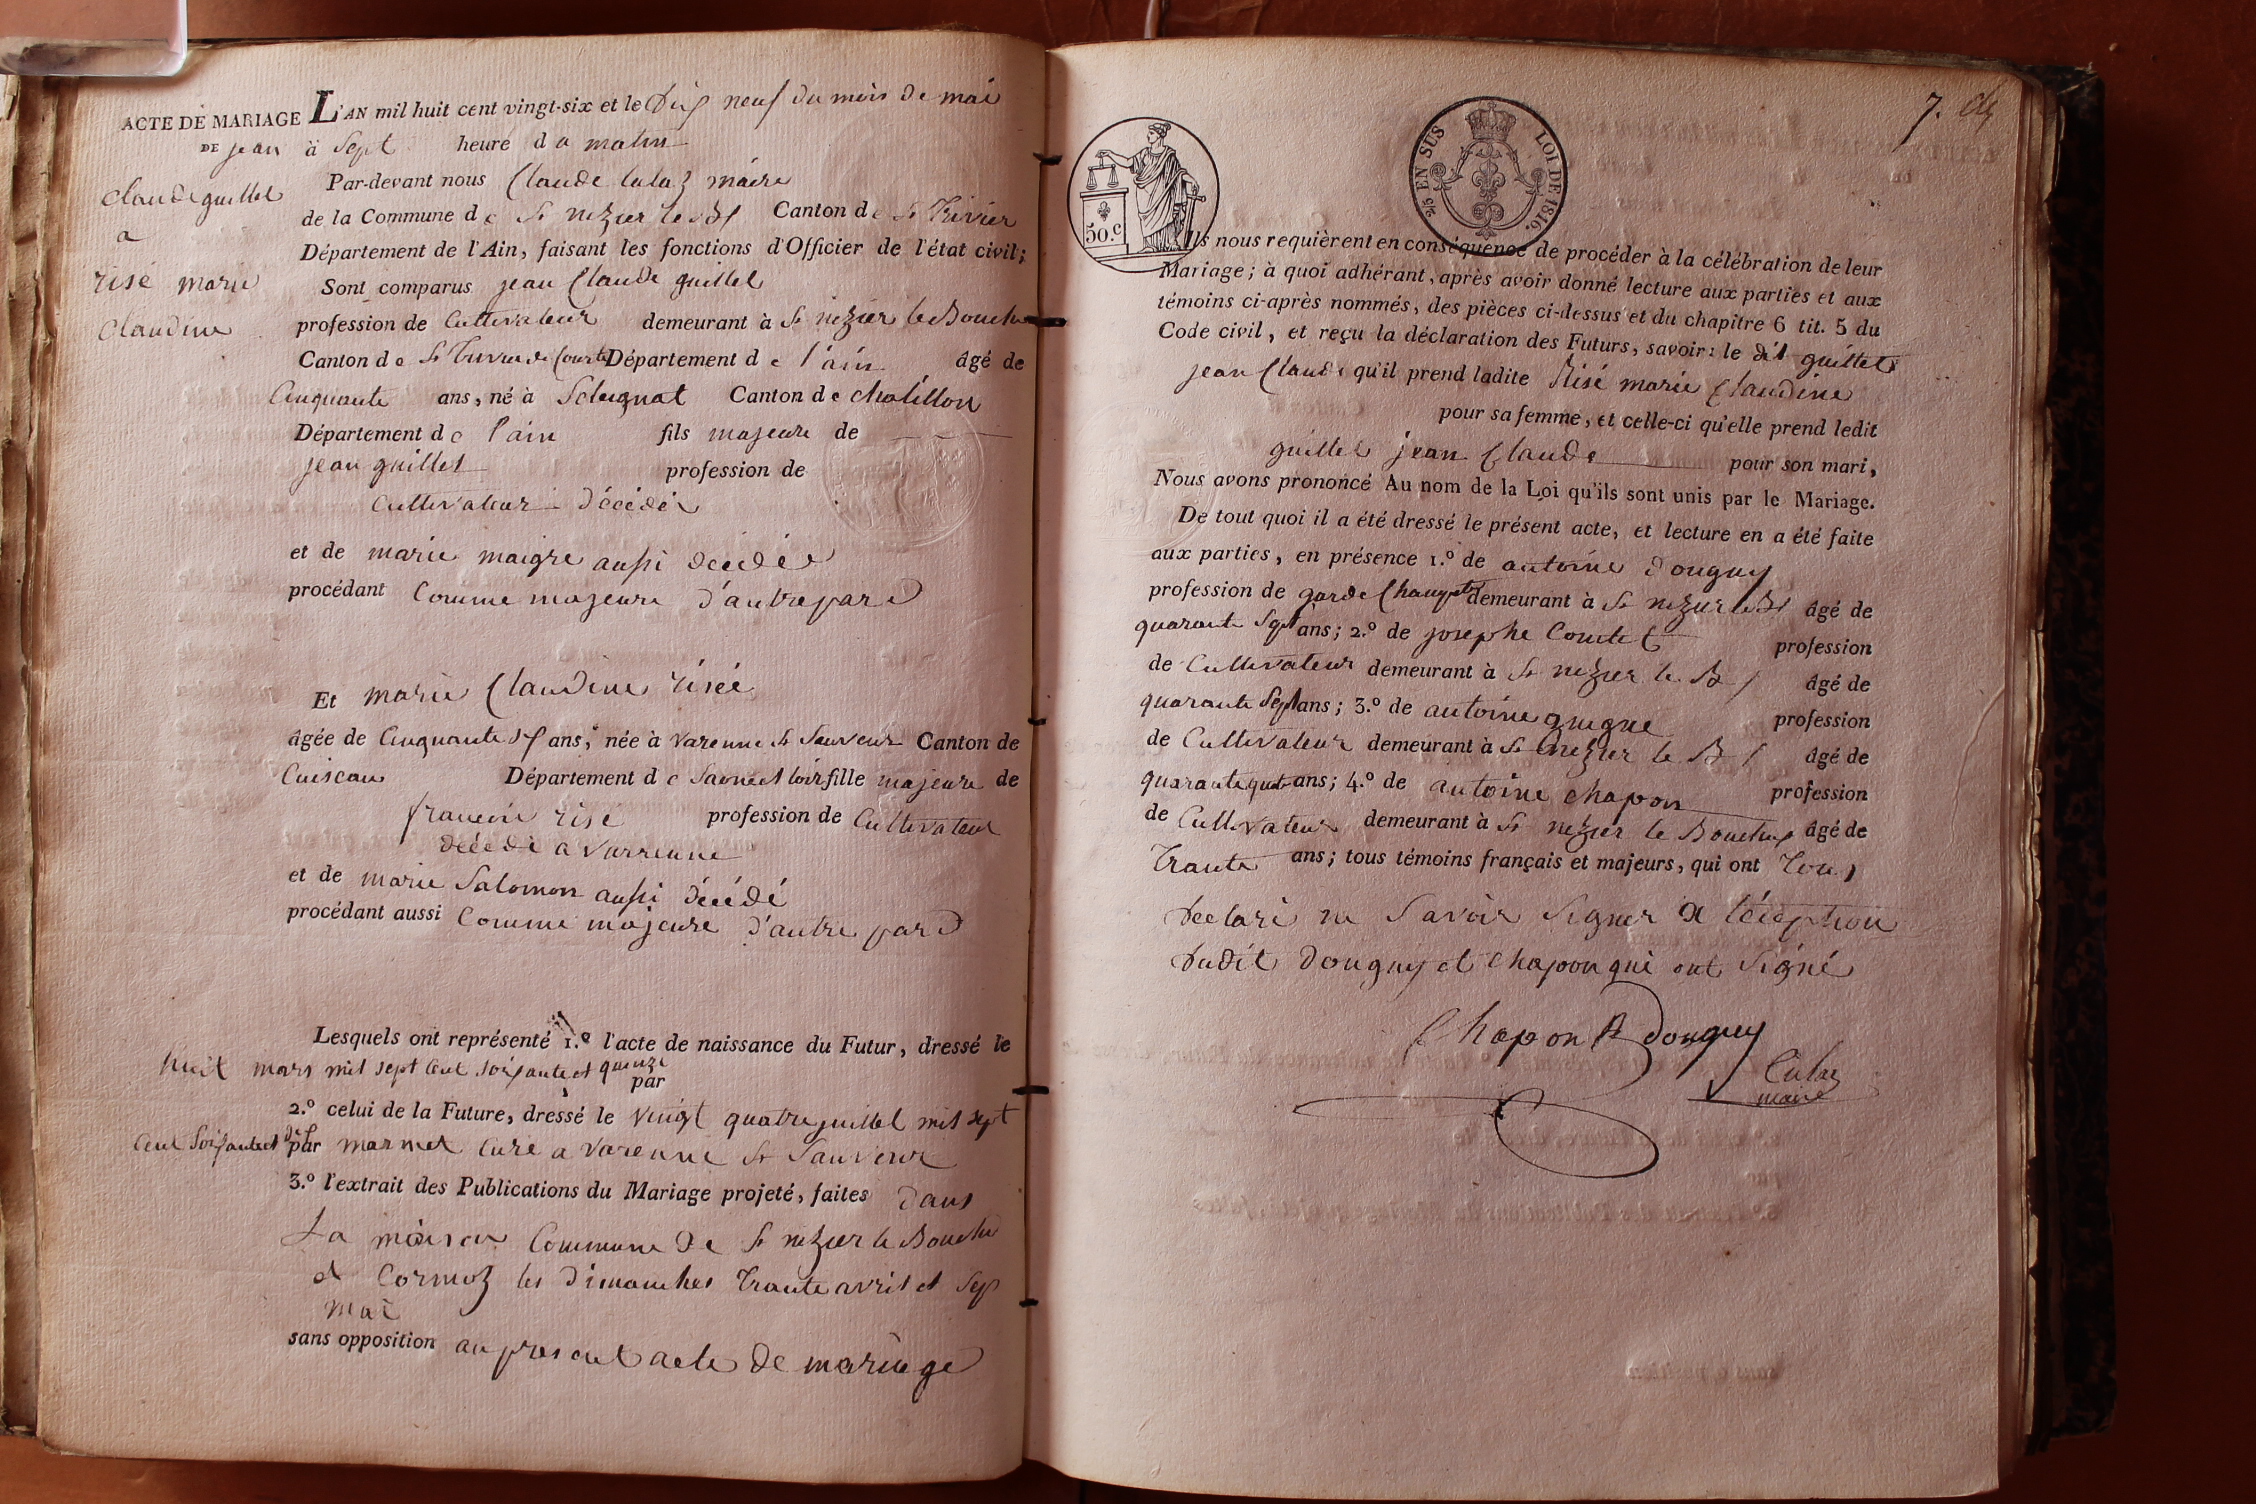 ACTE DE MARIAGE
DE jean
claude guillet
a
risé marie
claudine
L'AN mil huit cent vingt-six et le dix neuf du mois de mai
à sept heure du matin
Par-devant nous Claude Culaz maire
de la Commune de St nizier le Bt Canton de St Trivier
Département de l'Ain, faisant les fonctions d'Officier de l'état civil;
Sont comparus jean Claude guillet
profession de Cultivateur demeurant à St nizier le Bouchu
Canton de St Trivier de Courte Département de l'ain âgé de
Cinquante ans, né à Canton de chatillon
Département de l'ain fils majeure de
jean guillet profession de
Cultivateur décédé
et de marie maigre aussi décédée
procédant Comme majeure d'autre pard
Et marie Claudine risée
âgée de Cinquante ans, née à varenne St Sauveur Canton de
Cuiseau Département de Saone et loir fille majeure de
francoi rise profession de Cultivateur
décédé a Varrenne
et de marie Salomon aussi décédé
procédant aussi Comme majeure d'autre pard
Lesquels ont représenté 1.º l'acte de naissance du Futur, dressé le
huit mars mil sept cent soixante et quinze
par
2.º celui de la Future, dressé le vingt quatre juillet mil sept
cent soixante et dix par marmet curé a varenne St Sauveur
3.º l'extrait des Publications du Mariage projeté, faites dans
La maison Commune de St nizier le Bouchu
et Cormoz les dimanches trante avril et sep
mai
sans opposition au present acte de mariage
7.
50.c
2/5 EN SUS LOI DE 1816.
Ils nous requièrent en conséquence de procéder à la célébration de leur
Mariage; à quoi adhérant, après avoir donné lecture aux parties et aux
témoins ci-après nommés, des pièces ci-dessus et du chapitre 6 tit. 5 du
Code civil, et reçu la déclaration des Futurs, savoir: le dit guillet
jean Claude qu'il prend ladite Risé marie Claudine
pour sa femme, et celle-ci qu'elle prend ledit
guillet jean Claude pour son mari,
Nous avons prononcé Au nom de la Loi qu'ils sont unis par le Mariage.
De tout quoi il a été dressé le présent acte, et lecture en a été faite
aux parties, en présence 1.º de antoine douguy
profession de garde Champetre demeurant à St nizier le Bt âgé de
quarante Sept ans; 2.º de josephe Comtet profession
de Cultivateur demeurant à St nizier le Bt âgé de
quarante Sept ans; 3.º de antoine guigne profession
de Cultivateur demeurant à St nizier le Bt âgé de
quarante quat ans; 4.º de antoine chapon profession
de Cultivateur demeurant à St nizier le Bouchu âgé de
Trante ans; tous témoins français et majeurs, qui ont Tous
declaré ne Savoir Signer a léception
dudit douguy et chapon qui ont Signé
Chapon A douguy
Culaz
maire